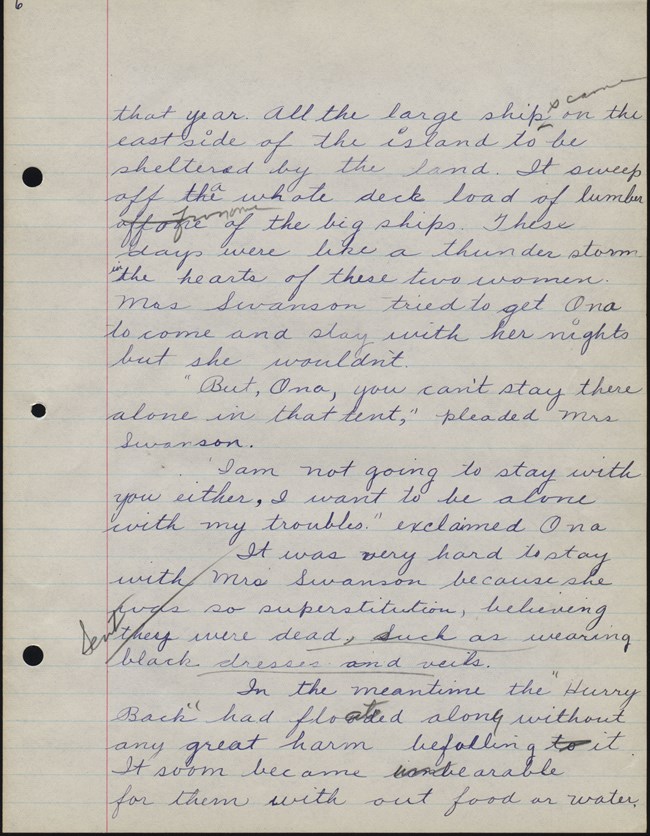 6
that year. All the large ships came on the
east side of the island to be
sheltered by the land. It sweep
off the a whole deck load of lumber
off one From one of the big ships. These
days were like a thunder storm
in the hearts of these two women.
Mrs Swanson tried to get Ona
to come and stay with her nights
but she wouldn't.
"But, Ona, you can't stay there
alone in that tent," pleaded Mrs
Swanson.
"I am not going to stay with
you either, I want to be alone
with my troubles." exclaimed Ona
It was very hard to stay
with Mrs Swanson because she
was so superstitution, believing
Sent
they were dead, such as wearing
black dresses and veils.
In the meantime the "Hurry
Back" had floated along without
any great harm befalling to it.
It soom became unbearable
for them with out food or water.